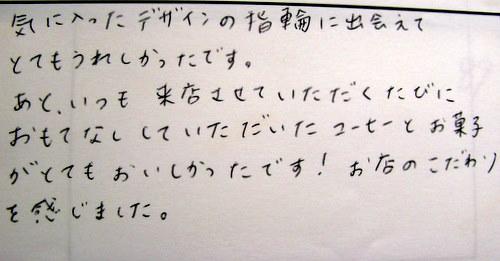 気に入ったデザインの指輪に出会えて
とてもうれしかったです。
あと、いつも 来店させていただくたびに
おもてなししていただいたコーヒーとお菓子
がとてもおいしかったです! お店のこだわり
を感じました。